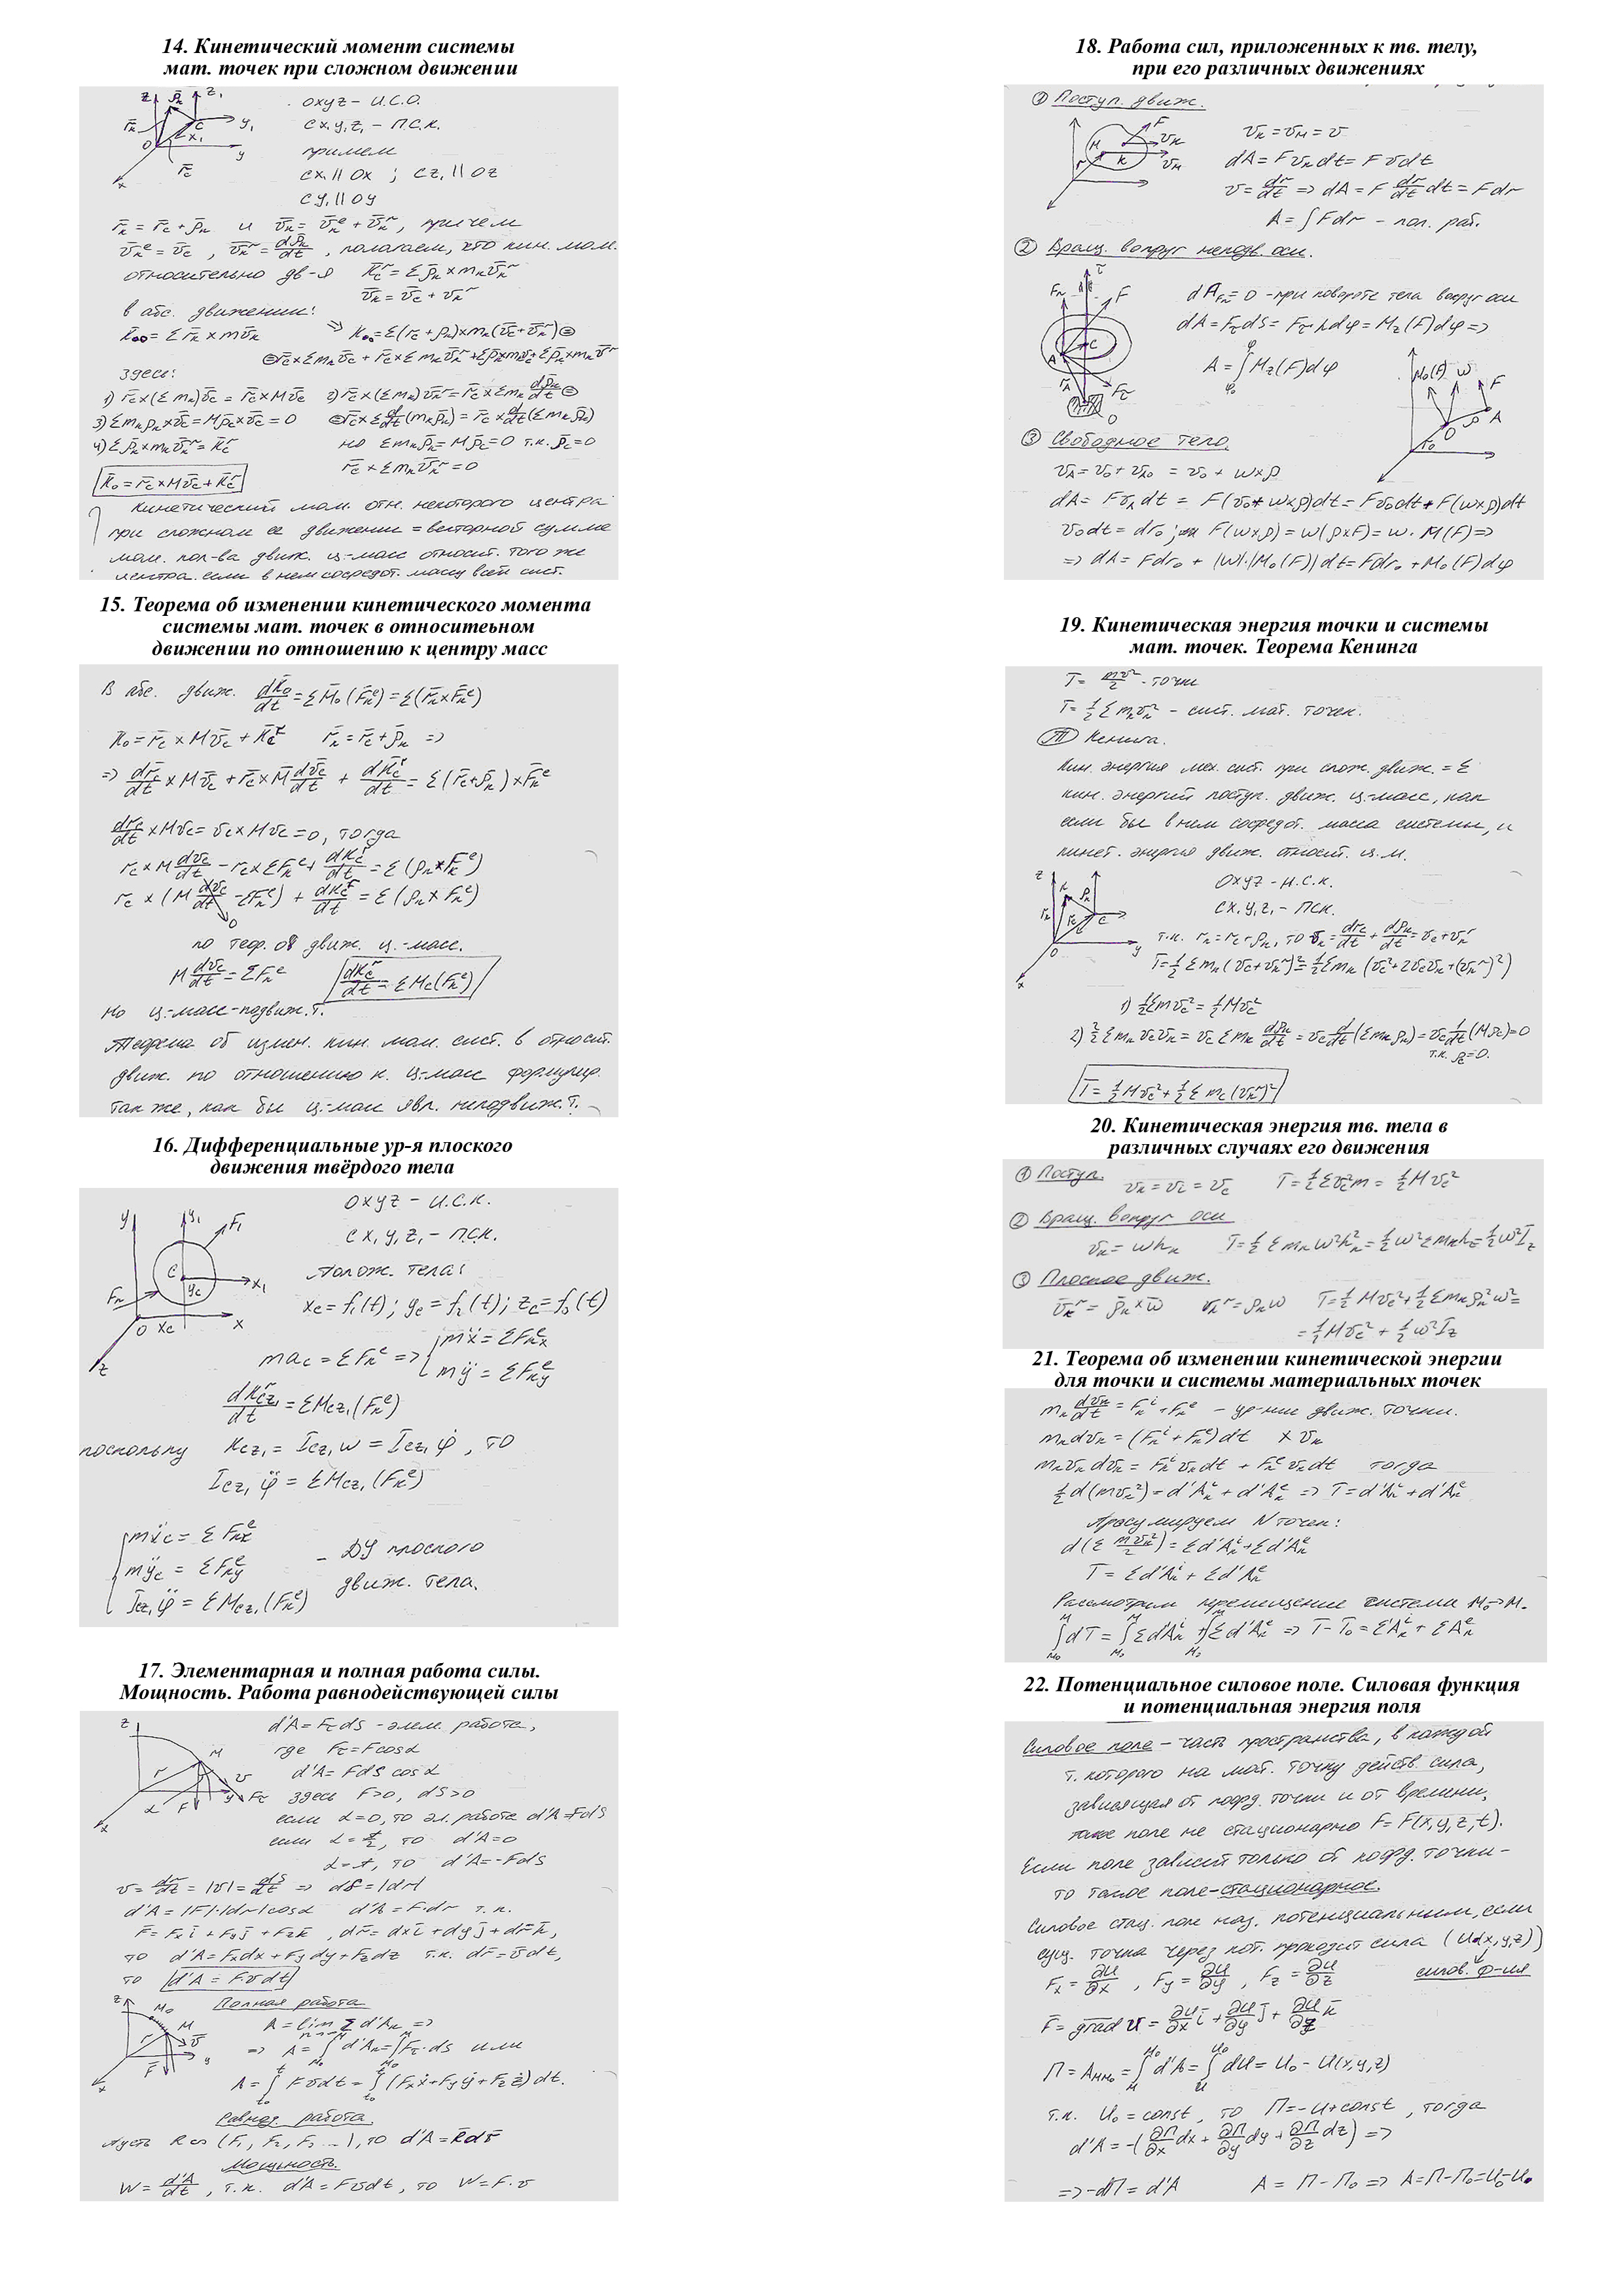 14. Кинетический момент системы
мат. точек при сложном движении
oxyz – И.С.О.
cx₁y₁z₁ – П.С.К.
примем
cx₁ || ox ; cz₁ || oz
cy₁ || oy
r̄ₖ = r̄c + ρ̄ₖ и v̄ₖ = v̄ₖᵉ + v̄ₖʳ, причем
v̄ₖᵉ = v̄c , v̄ₖʳ = dρ̄ₖ/dt , полагаем, что кин. мом.
относительно дв-я K̄cʳ = Σρ̄ₖ × mₖv̄ₖʳ
v̄ₖ = v̄c + vₖʳ
в абс. движении:
=> K₀₀ = Σ(r̄c + ρₖ) × mₖ(v̄c + v̄ₖʳ) ⊜
K̄₀₀ = Σ r̄ₖ × mv̄ₖ
⊜ r̄c × Σmₖv̄c + r̄c × Σmₖv̄ₖʳ + Σρ̄ₖ × mv̄c + Σρ̄ₖ × mₖv̄ʳ
здесь:
1) r̄c × (Σmₖ)v̄c = r̄c × Mv̄c 2) r̄c × (Σmₖ)v̄ₖʳ = r̄c × Σmₖ dρ̄ₖ/dt ⊜
3) Σmₖρₖ × v̄c = Mρ̄c × v̄c = 0 ⊜ r̄c × Σ d/dt (mₖρ̄ₖ) = r̄c × d/dt (Σmₖρ̄ₖ)
4) Σρ̄ₖ × mₖv̄ₖʳ = K̄cʳ но Σmₖρ̄ₖ = Mρ̄c = 0 т.к. ρ̄c = 0
r̄c × Σmₖv̄ₖʳ = 0
K̄₀ = r̄c × Mv̄c + K̄cʳ
Кинетический мом. отн. некоторого центра
при сложном ее движении = векторной сумме
мом. кол-ва движ. ц-масс относит. того же
центра, если в нем сосредот. массу всей сист.
15. Теорема об изменении кинетического момента
системы мат. точек в относитеьном
движении по отношению к центру масс
В абс. движ. dK̄₀/dt = ΣM̄₀(F̄ₖᵉ) = Σ(r̄ₖ × F̄ₖᵉ)
K̄₀ = r̄c × Mv̄c + K̄cʳ r̄ₖ = r̄c + ρ̄ₖ =>
=> dr̄c/dt × Mv̄c + r̄c × M̄ dv̄c/dt + dK̄cʳ/dt = Σ(r̄c + ρ̄ₖ) × F̄ₖᵉ
dr̄c/dt × Mvc = vc × Mvc = 0, тогда
rc × M dv̄c/dt – rc × ΣFₖᵉ + dK̄cʳ/dt = Σ(ρₖ × Fₖᵉ)
rc × (M dvc/dt – ΣFₖᵉ) + dKcʳ/dt = Σ(ρₖ × Fₖᵉ)
0
по теор. об движ. ц.-масс.
M dvc/dt = ΣFₖᵉ dKcʳ/dt = ΣMc(Fₖᵉ)
Но ц.-масс-подвиж. т.
Теорема об измен. кин. мом. сист. в относит.
движ. по отношению к. ц-масс формулир.
так же, как бы ц-масс явл. неподвиж. т.
16. Дифференциальные ур-я плоского
движения твёрдого тела
oxyz – И.С.К.
cx₁y₁z₁ – П.С.К.
Полож. тела:
xc = f₁(t); yc = f₂(t); zc = f₃(t)
mac = ΣFₖᵉ => { mẍ = ΣFₖxᵉ
mÿ = ΣFₖyᵉ
dKcz₁ʳ/dt = ΣMcz₁(Fₖᵉ)
поскольку Kcz₁ = Icz₁ω = Icz₁φ̇ , то
Icz₁φ̈ = ΣMcz₁(Fₖᵉ)
{ mẍc = ΣFₖxᵉ
mÿc = ΣFₖyᵉ – ДУ плоского
Icz₁φ̈ = ΣMcz₁(Fₖᵉ) движ. тела.
17. Элементарная и полная работа силы.
Мощность. Работа равнодействующей силы
d'A = Fτds – элем. работа,
где Fτ = Fcosα
d'A = Fds cosα
здесь F>0, ds>0
если α=0, то эл. работа d'A = Fds
если α = π/2, то d'A=0
α=π, то d'A=-Fds
v = dr/dt = |v| = ds/dt => ds = |dr|
d'A = |F|·|dr|cosα d'A = F·dr т.к.
F̄ = Fxī + Fyj̄ + Fzk̄ , dr̄ = dxī + dyj̄ + dzk̄,
то d'A = Fxdx + Fydy + Fzdz т.к. dr̄ = v̄dt,
то d'A = F·vdt
Полная работа
A = lim Σ d'Aₖ =>
=> A = ∫ d'Aₖ = ∫ Fτ·ds или
A = ∫ Fvdt = ∫ (Fxẋ + Fyẏ + Fzż) dt.
Равнод. работа.
Пусть R ∞ (F₁, F₂, F₃ ...), то d'A = R̄dr̄
Мощность.
W = d'A/dt , т.к. d'A = Fvdt, то W = F·v
18. Работа сил, приложенных к тв. телу,
при его различных движениях
① Поступ. движ.
vₖ = vм = v
dA = Fvₖdt = Fvdt
v = dr/dt => dA = F dr/dt dt = Fdr
A = ∫Fdr – пол. раб.
② Вращ. вокруг неподв. оси.
dAFₙ = 0 – при повороте тела вокруг оси
dA = Fτds = Fτhdφ = Mz(F)dφ =>
A = ∫ Mz(F)dφ
③ Свободное тело.
vA = v₀ + vA₀ = v₀ + ω×ρ
dA = FvAdt = F(v₀ + ω×ρ)dt = Fv₀dt + F(ω×ρ)dt
v₀dt = dr₀; F(ω×ρ) = ω(ρ×F) = ω·M(F) =>
=> dA = Fdr₀ + |ω|·|M₀(F)|dt = Fdr₀ + M₀(F)dφ
19. Кинетическая энергия точки и системы
мат. точек. Теорема Кенинга
T = mv²/2 – точки
T = ½Σmₖvₖ² – сист. мат. точек.
Ⓣ Кенига.
Кин. энергия мех. сист. при слож. движ. = Σ
кин. энергий поступ. движ. ц.-масс, как
если бы в нем сосредот. масса системы, и
кинет. энергия движ. относит. ц.м.
Oxyz – И.С.К.
Cx₁y₁z₁ – ПСК.
т.к. rₖ = rc + ρₖ, то vₖ = drc/dt + dρₖ/dt = vc + vₖʳ
T = ½Σmₖ(vc + vₖʳ)² = ½Σmₖ(vc² + 2vcvₖ + (vₖʳ)²)
1) ½Σmvc² = ½Mvc²
2) ²⁄₂Σmₖvcvₖ = vcΣmₖ dρₖ/dt = vc d/dt (Σmₖρₖ) = vc 1/dt (Mρc) = 0
т.к. ρc = 0.
T = ½Mvc² + ½Σmc(vₖʳ)²
20. Кинетическая энергия тв. тела в
различных случаях его движения
① Поступ. vₖ = vi = vc T = ½Σvc²m = ½Mvc²
② Вращ. вокруг оси
vₖ = ωhₖ T = ½Σmₖω²hₖ² = ½ω²Σmₖhₖ = ½ω²Iz
③ Плоское движ.
v̄ₖʳ = ρ̄ₖ × ω̄ vₖʳ = ρₖω T = ½Mvc² + ½Σmₖρₖ²ω² =
= ½Mvc² + ½ω²Iz
21. Теорема об изменении кинетической энергии
для точки и системы материальных точек
mₖ dvₖ/dt = Fₖⁱ + Fₖᵉ – ур-ние движ. точки.
mₖdvₖ = (Fₖⁱ + Fₖᵉ)dt × vₖ
mₖvₖdvₖ = Fₖⁱvₖdt + Fₖᵉvₖdt тогда
½d(mvₖ²) = d'Aₖⁱ + d'Aₖᵉ => T = d'Aₖⁱ + d'Aₖᵉ
Просумируем N точек:
d(Σ mvₖ²/2) = Σd'Aₖⁱ + Σd'Aₖᵉ
T = Σd'Aₖⁱ + Σd'Aₖᵉ
Рассмотрим перемещение системы M₀→M.
∫dT = ∫Σd'Aₖⁱ + ∫Σd'Aₖᵉ => T – T₀ = ΣAₖⁱ + ΣAₖᵉ
22. Потенциальное силовое поле. Силовая функция
и потенциальная энергия поля
Силовое поле – часть пространства, в каждой
т. которого на мат. точку действ. сила,
зависящая от коорд. точки и от времени,
такое поле не стационарно F = F(x,y,z,t).
Если поле зависит только от коорд. точки –
то такое поле-стационарное.
Силовое стац. поле наз. потенциальным, если
сущ. точка через кот. проходит сила (U(x,y,z))
Fx = ∂U/∂x , Fy = ∂U/∂y , Fz = ∂U/∂z силов. ф-ия
F̄ = grad U = ∂U/∂x ī + ∂U/∂y j̄ + ∂U/∂z k̄
П = Aмм₀ = ∫ d'A = ∫ dU = U₀ – U(x,y,z)
т.к. U₀ = const , то П = -U + const , тогда
d'A = -(∂П/∂x dx + ∂П/∂y dy + ∂П/∂z dz) =>
=> -dП = d'A A = П – П₀ => A = П – П₀ = U₀ – U₀